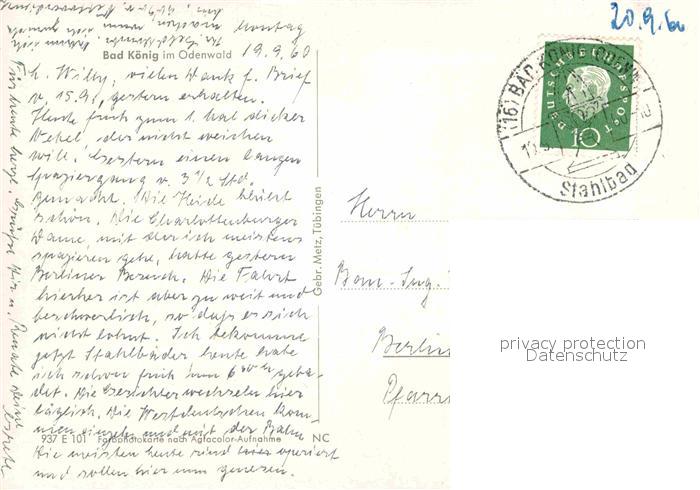 20.9.60
Montag
Bad König im Odenwald 19.9.60
L. Willy, vielen Dank f. Brief
v. 15.9., gestern erhalten.
Heute früh zum 1. Mal dicker
Nebel, der nicht weichen
will. Gestern einen langen
Spaziergang v. 3 1/2 Std.
gemacht. Die Heide blüht
schön. Die Charlottenburger
Dame, mit der ich meistens
spazieren gehe, hatte gestern
Berliner Besuch. Die Fahrt
hierher ist aber zu weit und
beschwerlich, so daß es sich
nicht lohnt. Ich bekomme
jetzt Stahlbäder, heute habe
ich schon früh um 6 geba-
det. Die Gesichter wechseln hier
täglich. Die Westdeutschen kom-
men einzeln und mit der Bahn
Die meisten Leute sind operiert
und sollen hier nun genesen.
Für heute herzl. Grüße Dir u. Renate
937 E 101 Farbphotokarte nach Agfacolor-Aufnahme NC
Gebr. Metz, Tübingen
DEUTSCHE BUNDESPOST
10
(16) BAD KÖNIG (ODENW)
Stahlbad
Herrn
Bau-Ing.
Berlin
Pfarr
privacy protection
Datenschutz